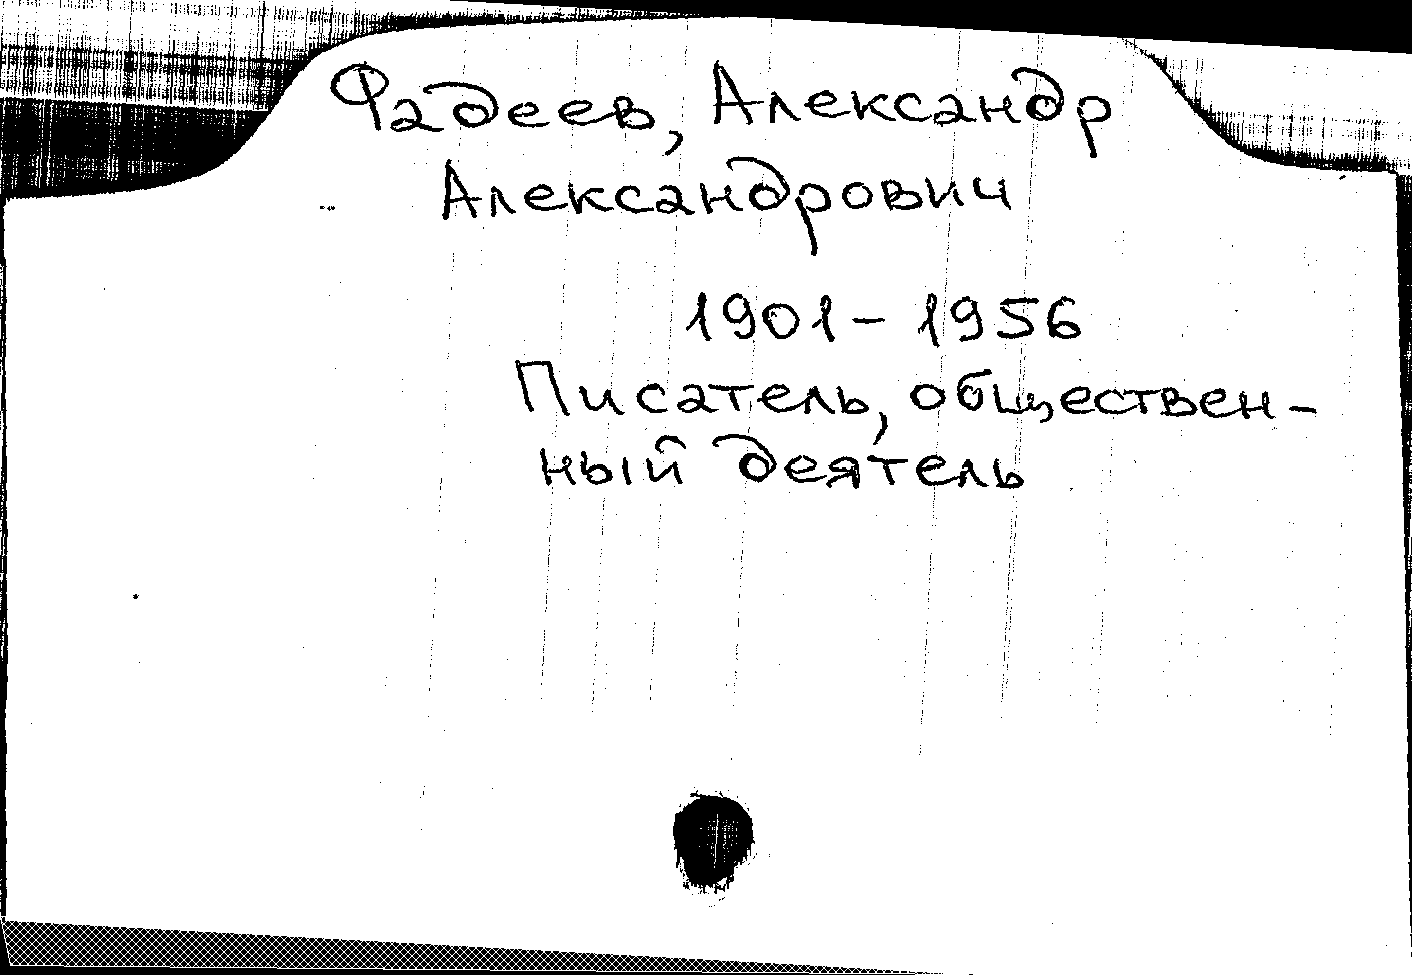 Фадеев, Александр
Александрович
1901-1956
Писатель, обществен-
ный деятель